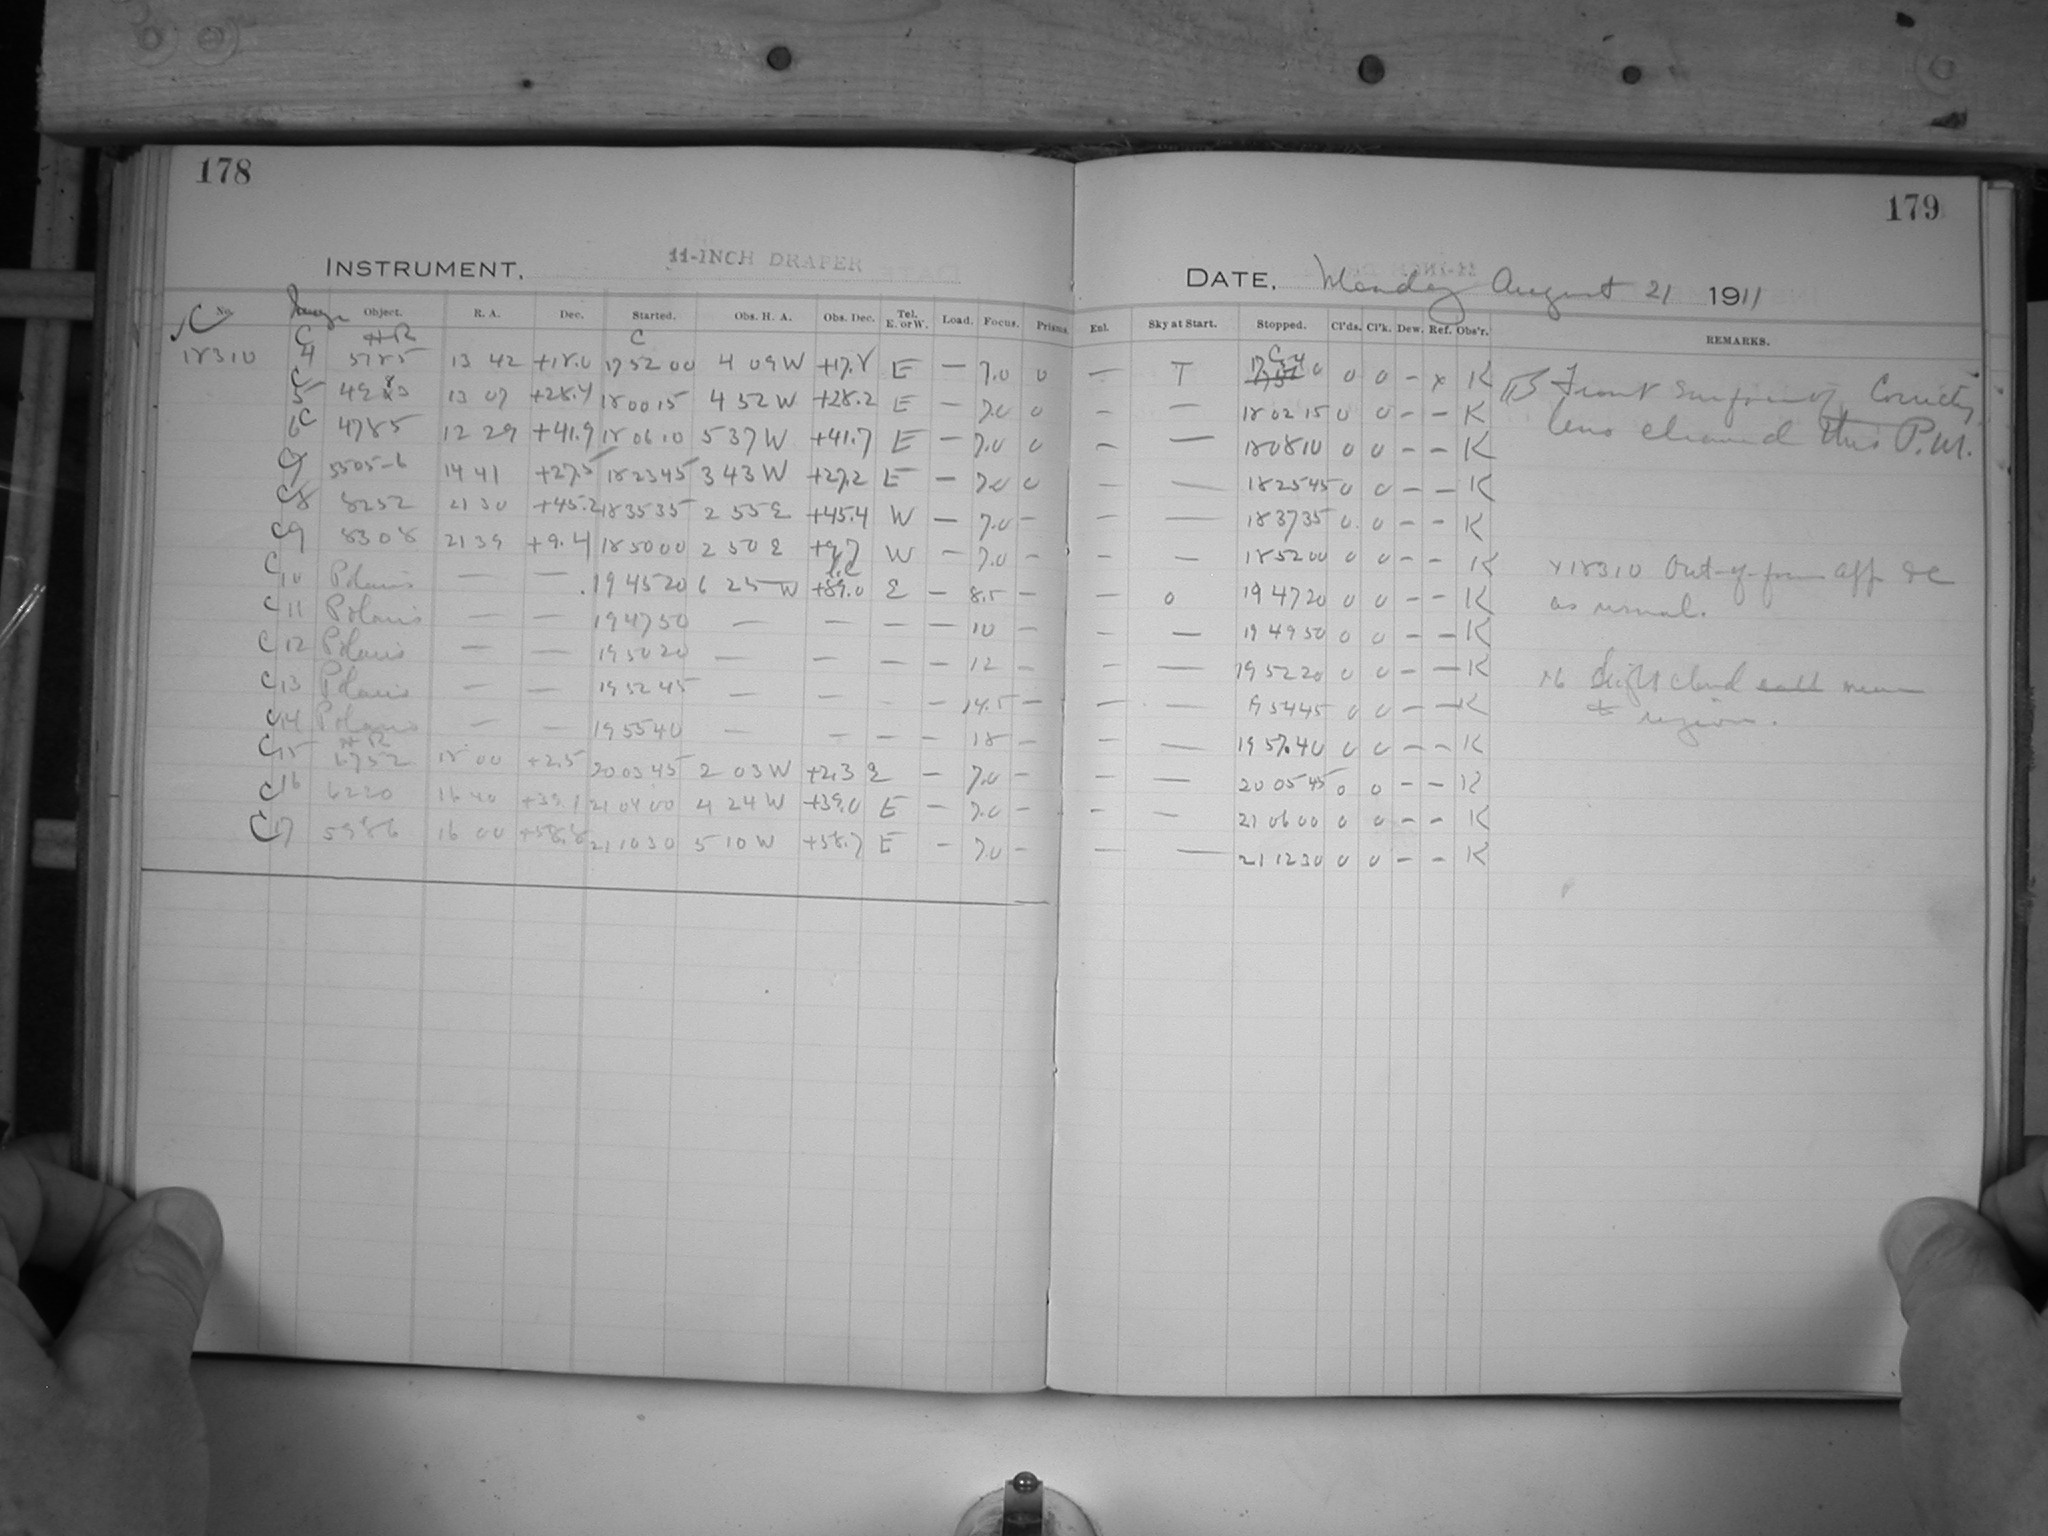 178
179
INSTRUMENT. 11-INCH DRAPER
DATE. Monday August 21 1911
No. Image Object. R. A. Dec. Started. Obs. H. A. Obs. Dec. Tel. E. or W. Load. Focus. Prisms. Enl. Sky at Start. Stopped. Cl'ds. Cl'k. Dew. Ref. Obs'r. REMARKS.
C C HR C C
18310 4 5185 13 42 +18.0 17 52 00 4 09 W +17.8 E — 7.0 0 — T 17 54 0 0 0 – x K Front surface of Correcting
5 13 07 +28.4 18 00 15 4 52 W +28.2 E – 7.0 0 – — 18 02 15 0 0 – – K lens cleaned this P.M.
6 C 4785 12 29 +41.9 18 06 10 5 37 W +41.7 E – 7.0 0 – — 18 08 10 0 0 – – K
C 7 5505-6 14 41 +27.5 18 23 45 3 43 W +27.2 E – 7.0 0 – — 18 25 45 0 0 – – K
C 8 8252 21 30 +45.2 18 35 35 2 55 E +45.4 W – 7.0 – – — 18 37 35 0 0 – – K
C 9 8308 21 39 +9.4 18 50 00 2 50 E +9.7 W – 7.0 – – — 18 52 00 0 0 – – K x18310 Out-of-focus
C 10 Polaris — — 19 45 20 6 25 W +89.0 E – 8.5 – – 0 19 47 20 0 0 – – K as usual.
C 11 Polaris — — 19 47 50 — — — — 10 – – — 19 49 50 0 0 – – K
C 12 Polaris — — 19 50 20 — — – – 12 – – — 19 52 20 0 0 – – K 16 Slight cloud near
C 13 Polaris — — 19 52 45 — – - – 14.5 – – — 19 54 45 0 0 – – K region.
C 14 Polaris – – 19 55 40 – – – – 18 – – — 19 57 40 0 0 – – K
HR
C 15 6752 18 00 +2.5 20 03 45 2 03 W +2.3 E – 7.0 – – — 20 05 45 0 0 – – K
C 16 6220 16 40 +39.1 21 04 00 4 24 W +39.0 E – 7.0 – – — 21 06 00 0 0 – – K
C 17 5986 16 00 +58.8 21 10 30 5 10 W +58.7 E – 7.0 – – — 21 12 30 0 0 – – K